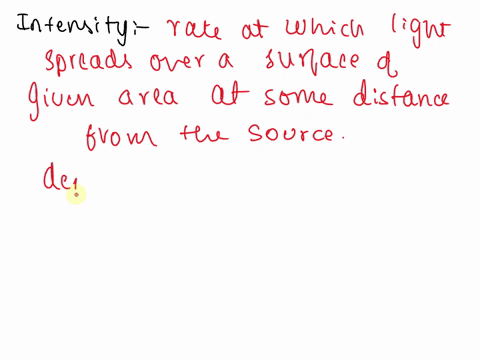 Intensity:- rate at which light
spreads over a surface of
given area at some distance
from the source.